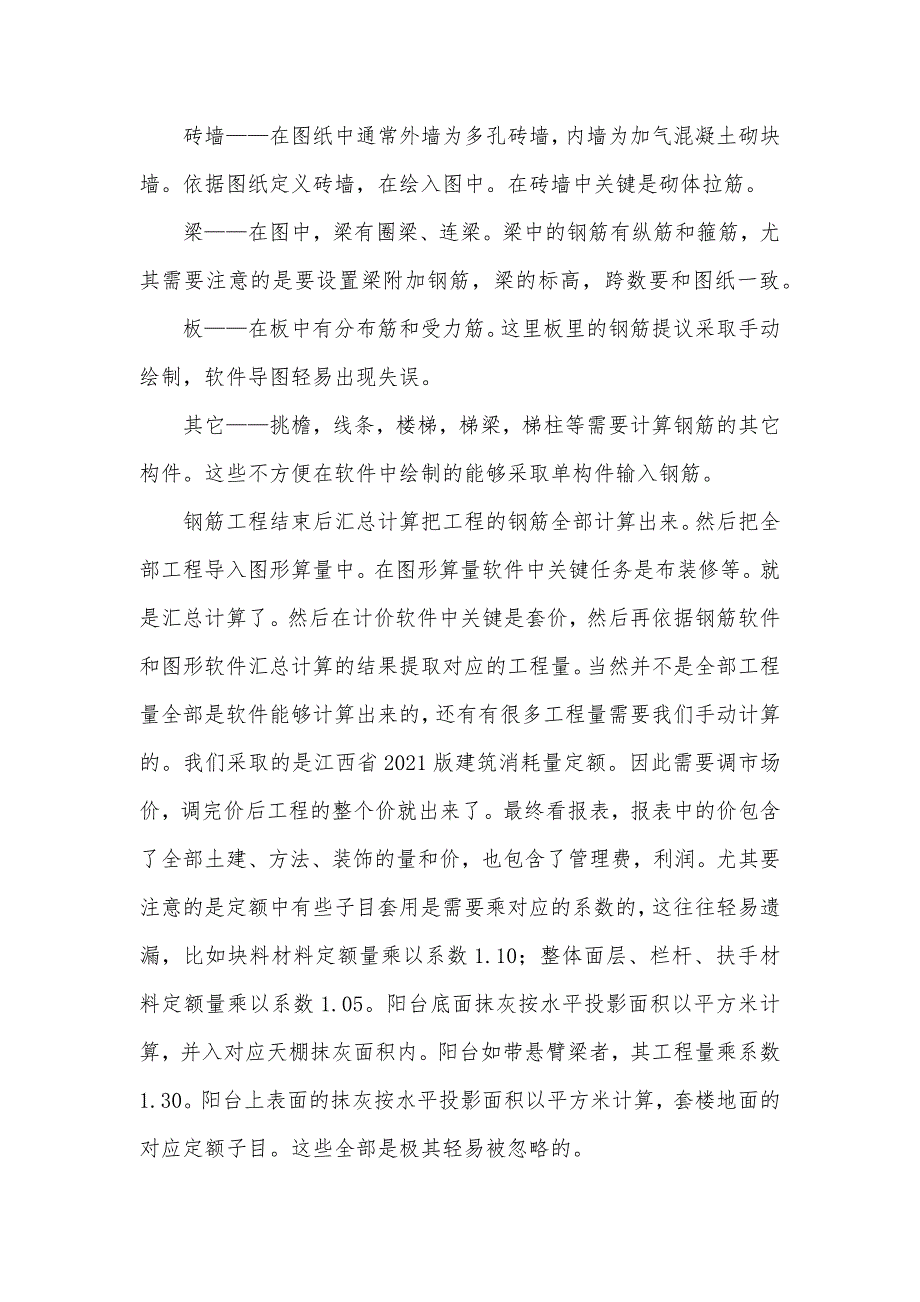 砖墙——在图纸中通常外墙为多孔砖墙,内墙为加气混凝土砌块
墙。依据图纸定义砖墙，在绘入图中。在砖墙中关键是砌体拉筋。
梁——在图中，梁有圈梁、连梁。梁中的钢筋有纵筋和箍筋，尤
其需要注意的是要设置梁附加钢筋，梁的标高，跨数要和图纸一致。
板——在板中有分布筋和受力筋。这里板里的钢筋提议采取手动
绘制，软件导图轻易出现失误。
其它——挑檐，线条，楼梯，梯梁，梯柱等需要计算钢筋的其它
构件。这些不方便在软件中绘制的能够采取单构件输入钢筋。
钢筋工程结束后汇总计算把工程的钢筋全部计算出来。然后把全
部工程导入图形算量中。在图形算量软件中关键任务是布装修等。就
是汇总计算了。然后在计价软件中关键是套价，然后再依据钢筋软件
和图形软件汇总计算的结果提取对应的工程量。当然并不是全部工程
量全部是软件能够计算出来的，还有有很多工程量需要我们手动计算
的。我们采取的是江西省 2021 版建筑消耗量定额。因此需要调市场
价，调完价后工程的整个价就出来了。最终看报表，报表中的价包含
了全部土建、方法、装饰的量和价，也包含了管理费，利润。尤其要
注意的是定额中有些子目套用是需要乘对应的系数的，这往往轻易遗
漏，比如块料材料定额量乘以系数 1.10；整体面层、栏杆、扶手材
料定额量乘以系数 1.05。阳台底面抹灰按水平投影面积以平方米计
算，并入对应天棚抹灰面积内。阳台如带悬臂梁者，其工程量乘系数
1.30。阳台上表面的抹灰按水平投影面积以平方米计算，套楼地面的
对应定额子目。这些全部是极其轻易被忽略的。